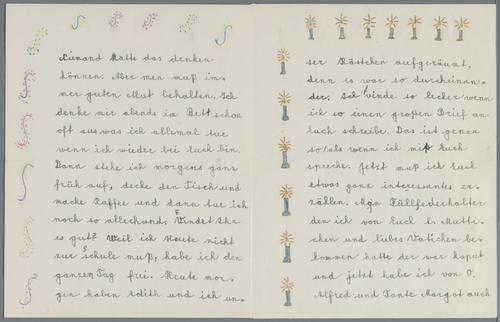 Niemand hätte das denken
können. Aber men muß im-
mer guten Mut behalten. Ich
denke mir abends im Bett schon
oft aus was ich allemal tue
wenn ich wieder bei Euch bin.
Dann stehe ich morgens ganz
früh auf, decke den Tisch und
mache Kaffee und dann tue ich
noch so allerhand. Findet Ihr
es gut? Weil ich Heute nicht
zur Schule muß, habe ich den
ganzen Tag frei. Heute mor-
gen haben Edith und ich un-
ser Kästchen aufgeräumt,
denn es war so durcheinan-
der. Ich finde so lecker wenn
ich so einen großen Brief an
Euch schreibe. Das ist genau
so als wenn ich mit Euch
spreche. Jetzt muß ich Euch
etwas ganz interessantes er-
zählen. Mein Füllfederhalter
den ich von Euch l. Mutti-
chen und liebes Vatichen be-
kommen hatte der war kaput
und jetzt habe ich von O.
Alfred und Tante Margot auch